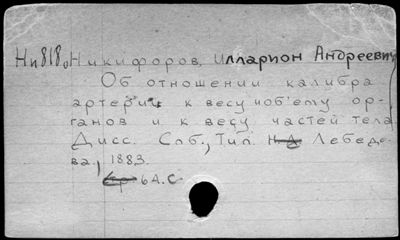 Ни818. Никифоров, Илларион Андреевич
Об отношении калибра
артерий к весу и об'ему ор-
ганов и к весу частей тела.
Дисс. Спб., Тип. Лебеде-
ва, 1883.
6А.С.